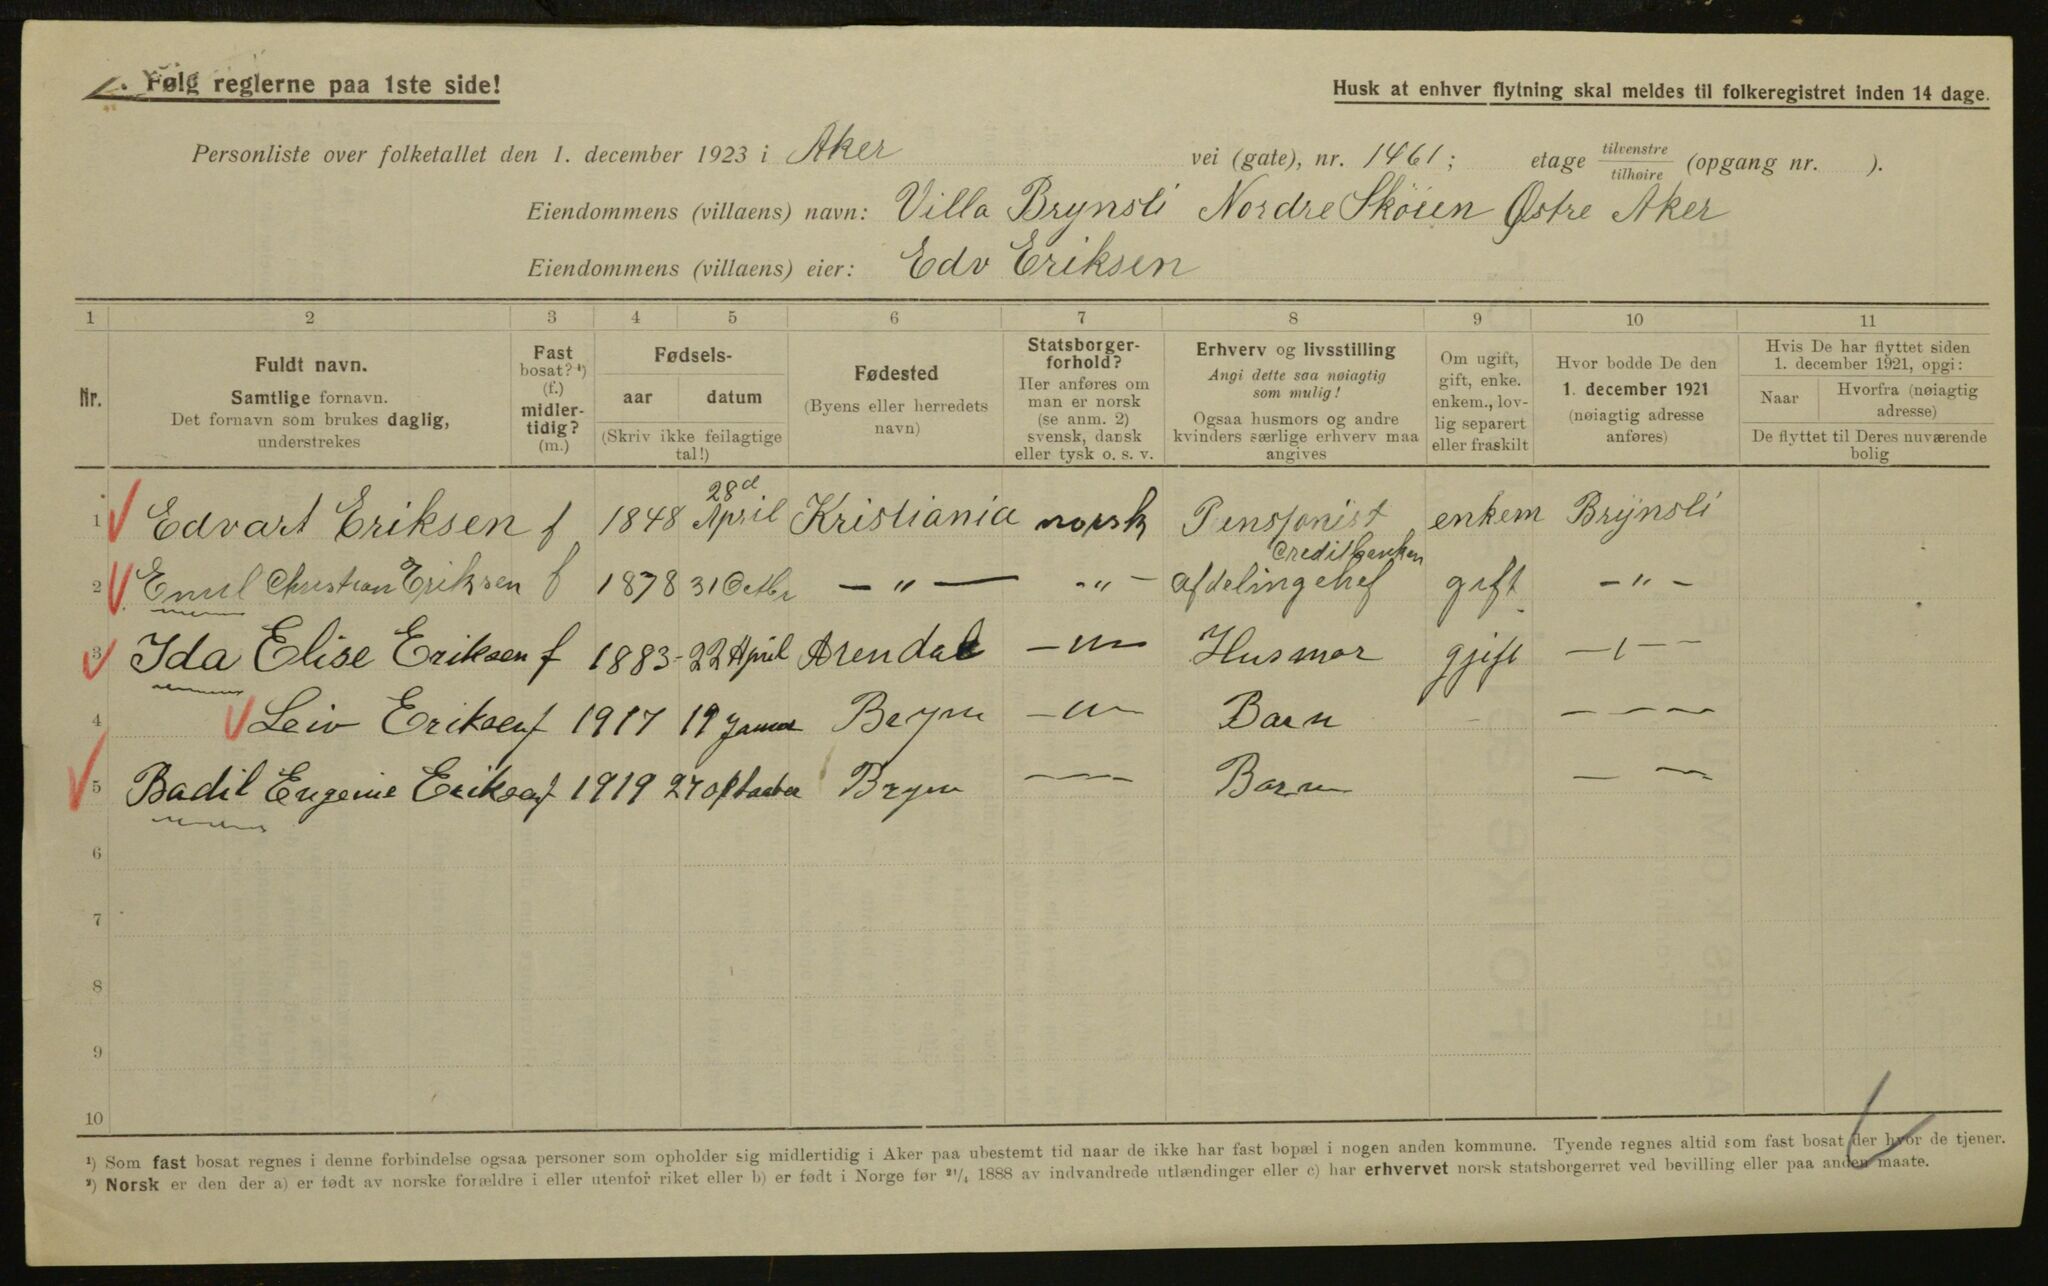 Følg reglerne paa 1ste side!
Husk at enhver flytning skal meldes til folkeregistret inden 14 dage.
Personliste over folketallet den 1. december 1923 i Aker vei (gate), nr. 1461; etage tilvenstre tilhøire (opgang nr. ).
Eiendommens (villaens) navn: Villa Brynsli Nordre Skøien Østre Aker
Eiendommens (villaens) eier: Edv Eriksen
1 2 3 4 5 6 7 8 9 10 11
Nr.
Fuldt navn.
Samtlige fornavn.
Det fornavn som brukes daglig,
understrekes
Fast
bosat? ¹)
(f.)
midler-
tidig?
(m.)
Fødsels-
aar datum
(Skriv ikke feilagtige
tal!)
Fødested
(Byens eller herredets
navn)
Statsborger-
forhold?
Her anføres om
man er norsk
(se anm. 2)
svensk, dansk
eller tysk o. s. v.
Erhverv og livsstilling
Angi dette saa nøiagtig
som mulig!
Ogsaa husmors og andre
kvinders særlige erhverv maa
angives
Om ugift,
gift, enke.
enkem., lov-
lig separert
eller fraskilt
Hvor bodde De den
1. december 1921
(nøiagtig adresse
anføres)
Hvis De har flyttet siden
1. december 1921, opgi:
Naar
Hvorfra (nøiagtig
adresse)
De flyttet til Deres nuværende
bolig
1 Edvart Eriksen f 1848 28d April Kristiania norsk Pensjonist enkem Brynsli
2 Emil Christian Eriksen f 1878 31 Octbr — „ — - „ - Creditbanken afdelingchef gift - „ -
3 Ida Elise Eriksen f 1883 - 22 April Arendal — „ — Husmor gjift — „ —
4 Leiv Eriksen f 1917 19 Januar Bryn — „ — Barn - — — —
5 Bodil Eugenie Eriksen f 1919 27 Oktober Bryn — — Barn — —
6
7
8
9
10
¹) Som fast bosat regnes i denne forbindelse ogsaa personer som opholder sig midlertidig i Aker paa ubestemt tid naar de ikke har fast bopæl i nogen anden kommune. Tyende regnes altid som fast bosat der hvor de tjener.
²) Norsk er den der a) er født av norske forældre i eller utenfor riket eller b) er født i Norge før ²¹/₄ 1888 av indvandrede utlændinger eller c) har erhvervet norsk statsborgerret ved bevilling eller paa anden maate.